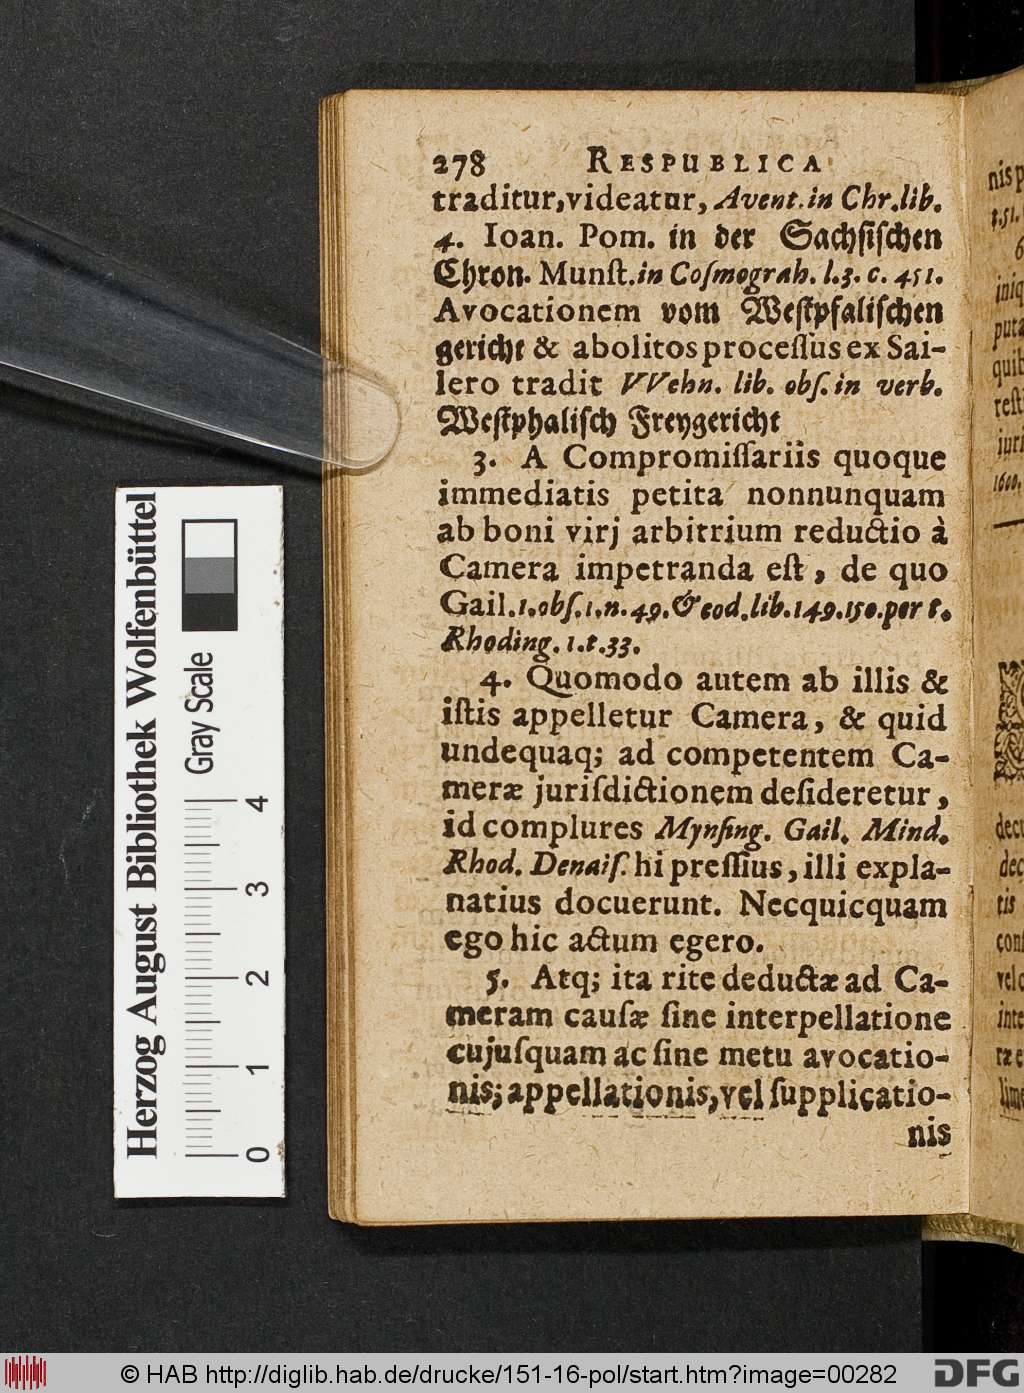 278 RESPUBLICA
traditur, videatur, Avent. in Chr. lib.
4. Ioan. Pom. in der Sachsiſchen
Chron. Munſt. in Coſmograh. l. 3. c. 451.
Avocationem vom Weſtpfaliſchen
gericht & abolitos proceſſus ex Sai-
lero tradit VVehn. lib. obſ. in verb.
Weſtphaliſch Freygericht
3. A Compromiſſariis quoque
immediatis petita nonnunquam
ab boni virj arbitrium reductio à
Camera impetranda eſt, de quo
Gail. 1. obſ. 1. n. 49. & eod. lib. 149. 150. per t.
Rhoding. 1. t. 33.
4. Quomodo autem ab illis &
iſtis appelletur Camera, & quid
undequaq; ad competentem Ca-
meræ jurisdictionem deſideretur,
id complures Mynſing. Gail. Mind.
Rhod. Denaiſ. hi preſſius, illi expla-
natius docuerunt. Necquicquam
ego hic actum egero.
5. Atq; ita rite deductæ ad Ca-
meram cauſæ ſine interpellatione
cujuſquam ac ſine metu avocatio-
nis; appellationis, vel ſupplicatio-
nis
nis p
t. 51.
6
iniq
puta
quit
reſt
juri
1600.
decu
dec
tis
conſ
velo
inte
ræ e
lime
Herzog August Bibliothek Wolfenbüttel
Gray Scale
0 1 2 3 4
© HAB http://diglib.hab.de/drucke/151-16-pol/start.htm?image=00282
DFG